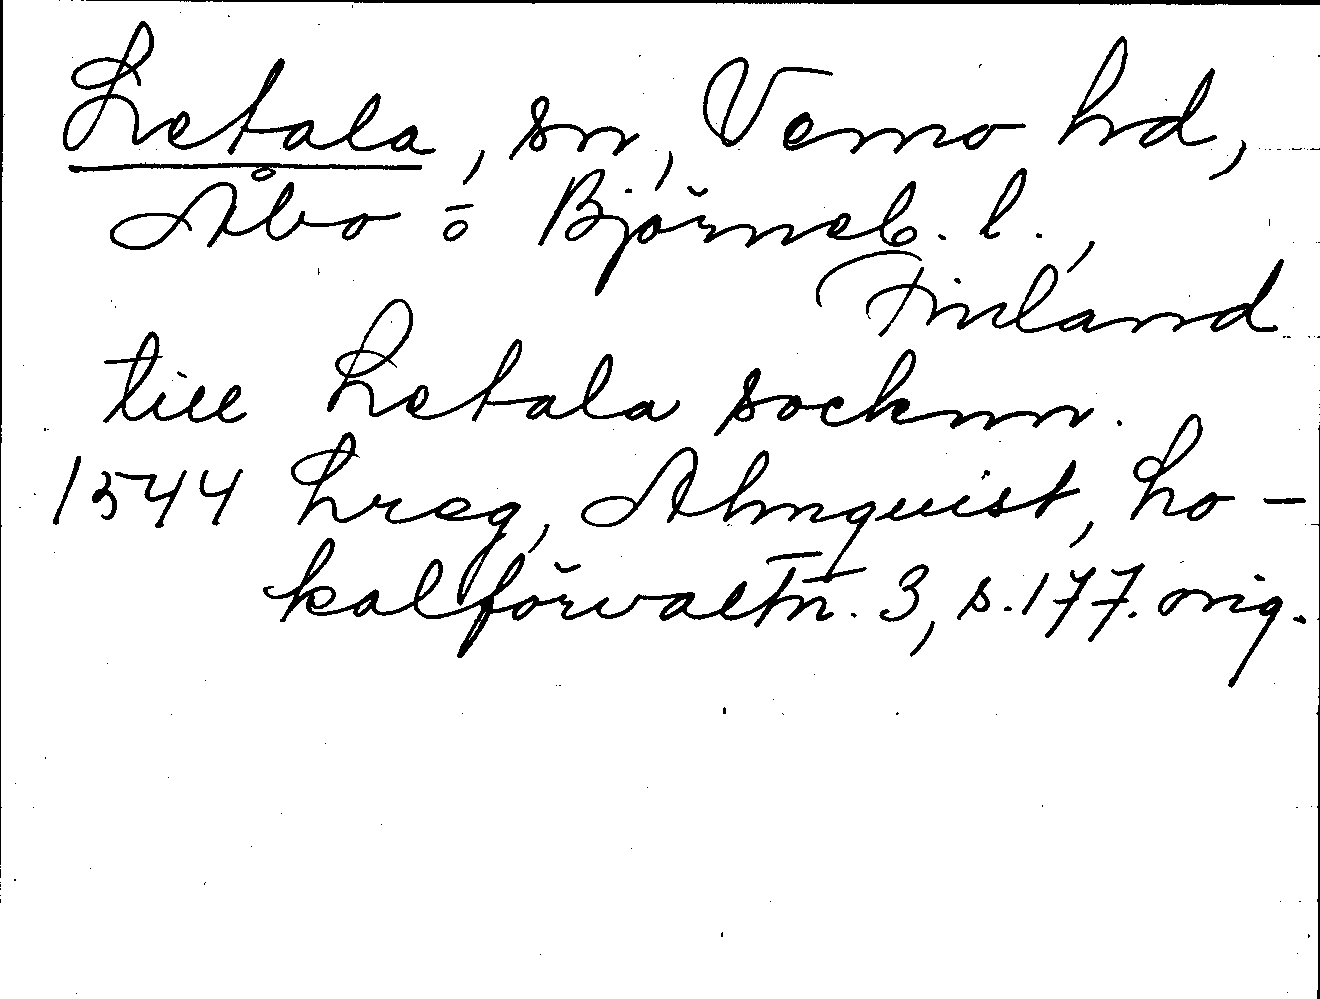 Letala, sn, Vemo hd,
Åbo o Björneb. l.,
Finland
till Letala socknn.
1544 Lreg, Almquist, Lo-
kalförvaltn. 3, s. 177. orig.